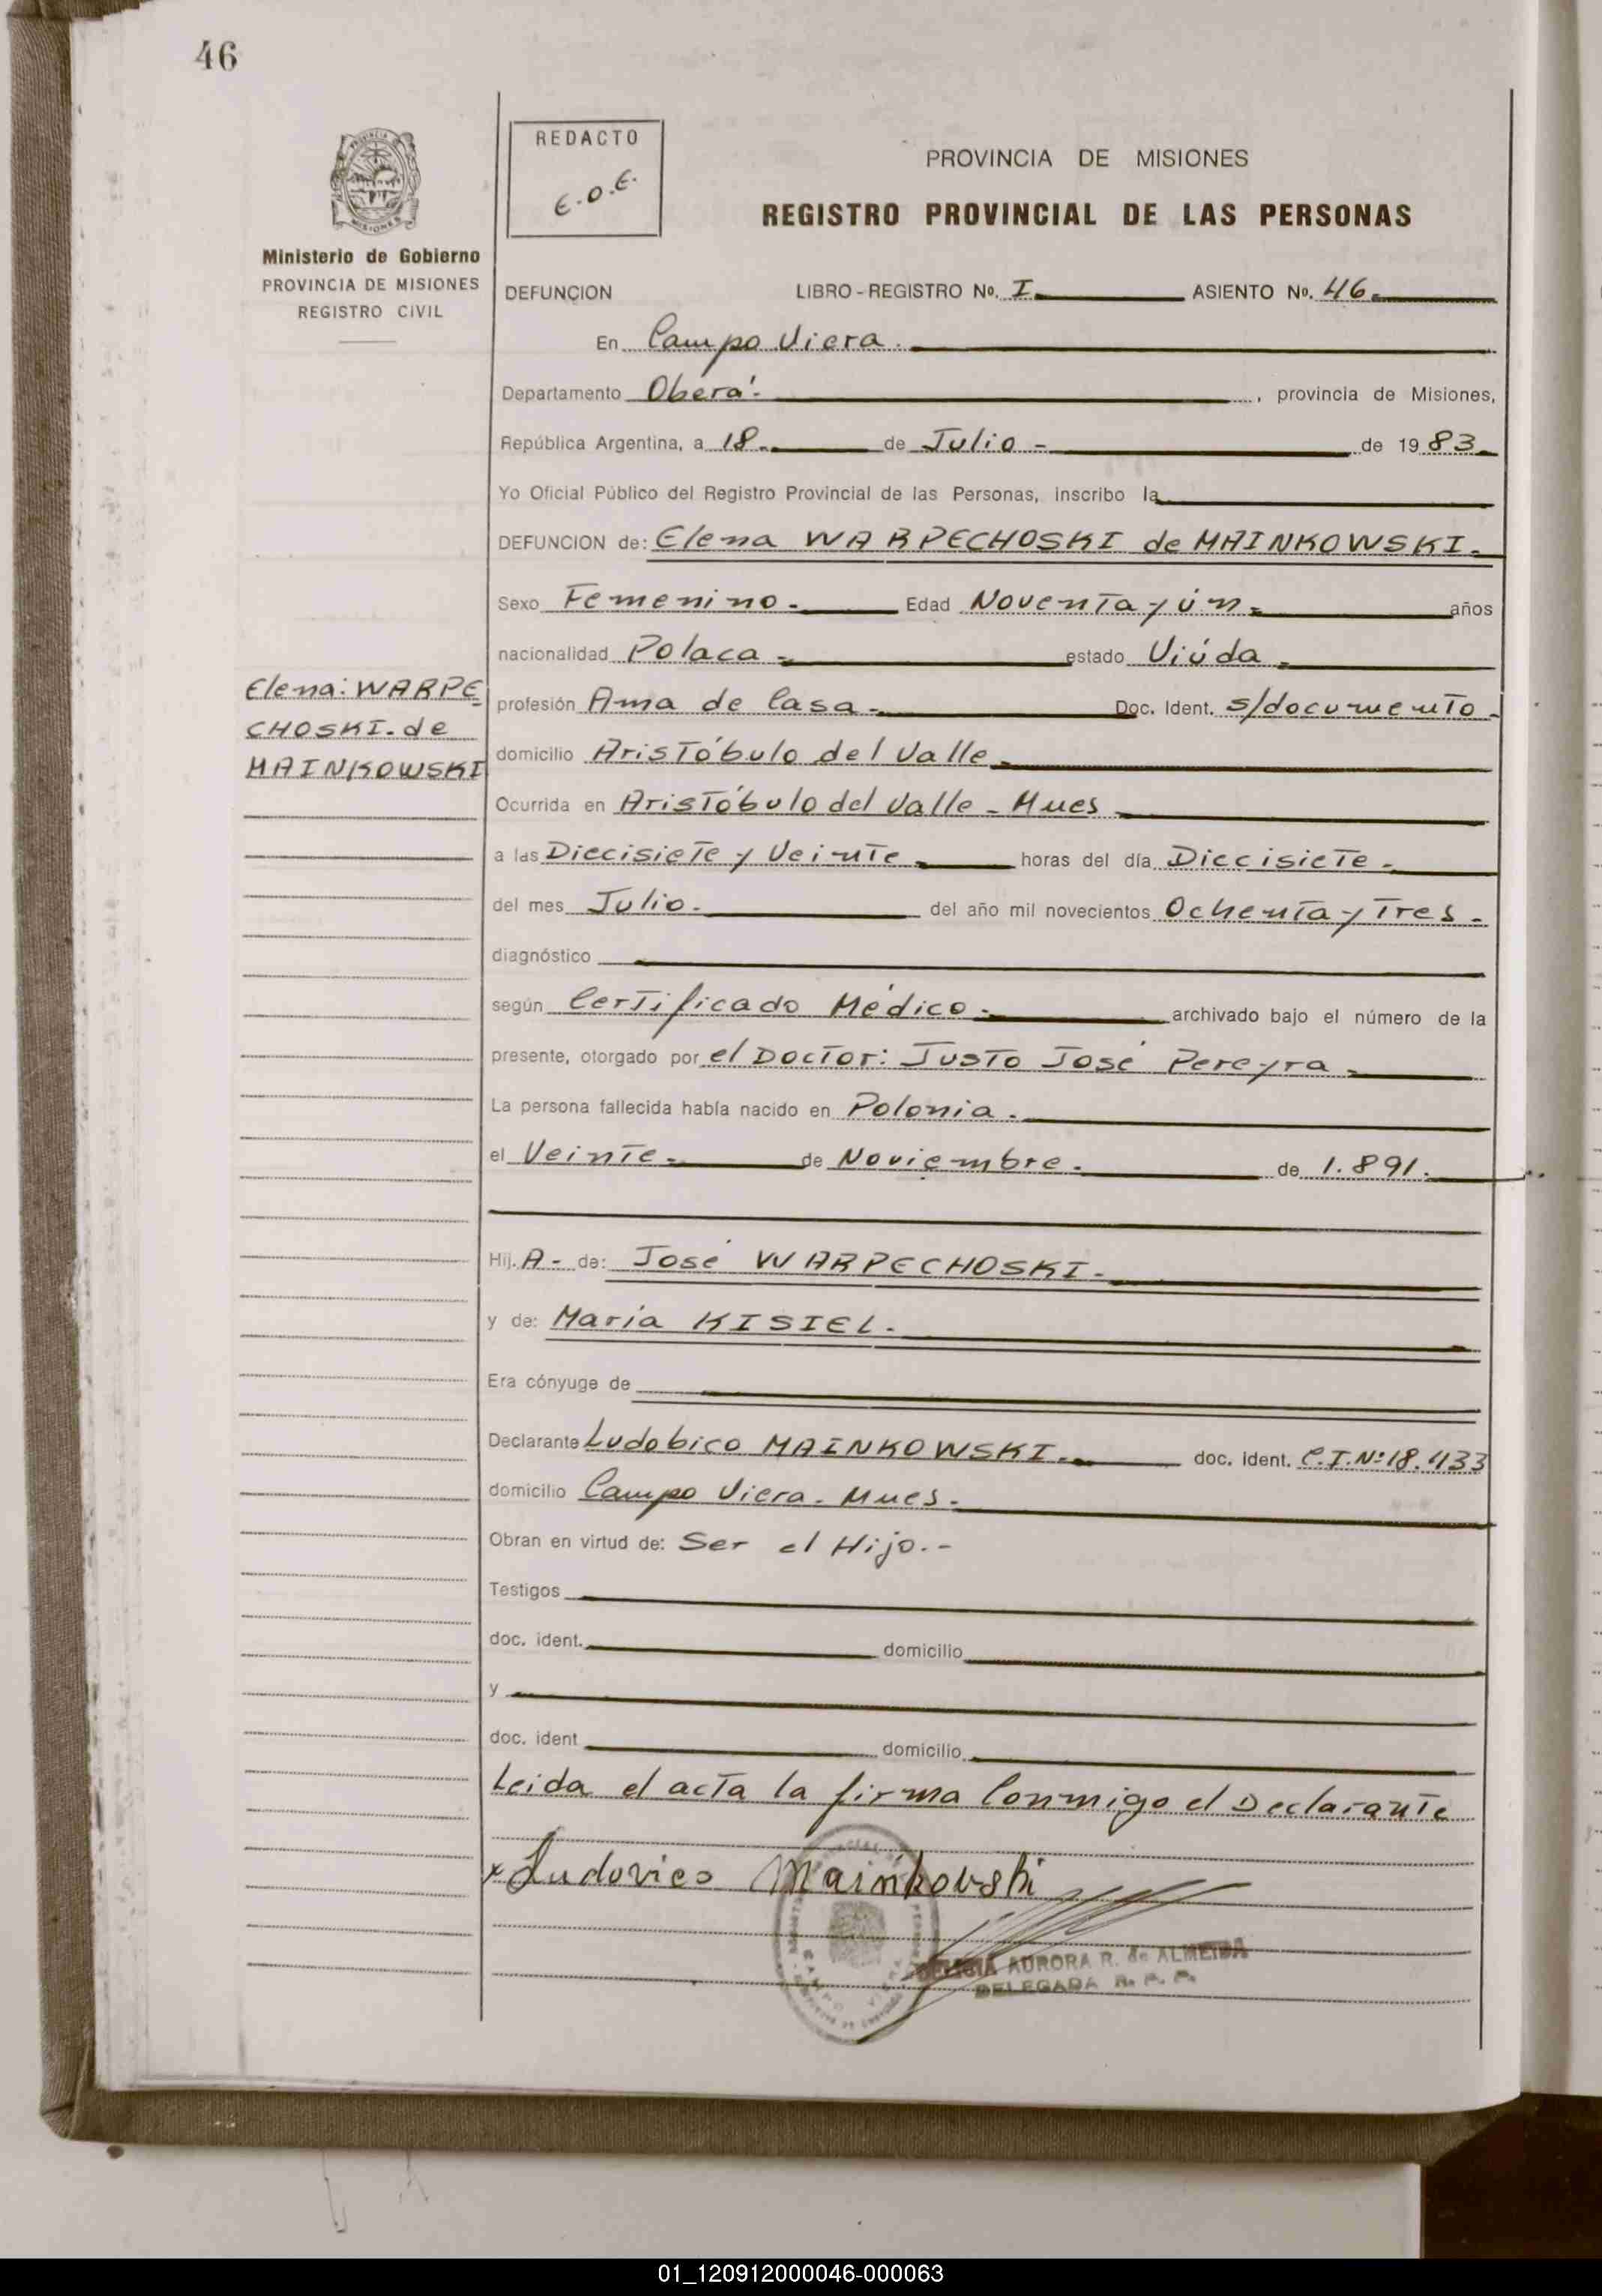 46
REDACTO
E.O.E.
PROVINCIA DE MISIONES
REGISTRO PROVINCIAL DE LAS PERSONAS
Ministerio de Gobierno
PROVINCIA DE MISIONES
REGISTRO CIVIL
DEFUNCION LIBRO-REGISTRO No. I. ASIENTO No. 46.
En Campo Viera.
Departamento Oberá.- , provincia de Misiones,
República Argentina, a 18.- de Julio.- de 19 83.-
Yo Oficial Público del Registro Provincial de las Personas, inscribo la
DEFUNCION de: Elena WARPECHOSKI de MAINKOWSKI.-
Sexo Femenino.- Edad Noventa y ún.- años
nacionalidad Polaca.- estado Viúda.-
Elena: WARPE
CHOSKI. de
MAINKOWSKI
profesión Ama de Casa.- Doc. Ident. s/documento.-
domicilio Aristóbulo del Valle.-
Ocurrida en Aristóbulo del Valle - Mnes
a las Diecisiete y Veinte.- horas del día Diecisiete.-
del mes Julio.- del año mil novecientos Ochenta y Tres.-
diagnóstico
según Certificado Médico.- archivado bajo el número de la
presente, otorgado por el Doctor: Justo José Pereyra.-
La persona fallecida había nacido en Polonia.-
el Veinte.- de Noviembre.- de 1.891.-
Hij. A.- de: José WARPECHOSKI.-
y de: María KISIEL.-
Era cónyuge de
Declarante Ludobico MAINKOWSKI.- doc. ident. C.I.Nº18.433
domicilio Campo Viera - Mnes.-
Obran en virtud de: Ser el Hijo.-
Testigos
doc. ident. domicilio
y
doc. ident domicilio
Leida el acta la firma Conmigo el Declarante
x Ludovico Maińkovski
AURORA R. de ALMEIDA
DELEGADA R. P. P.
01_120912000046-000063